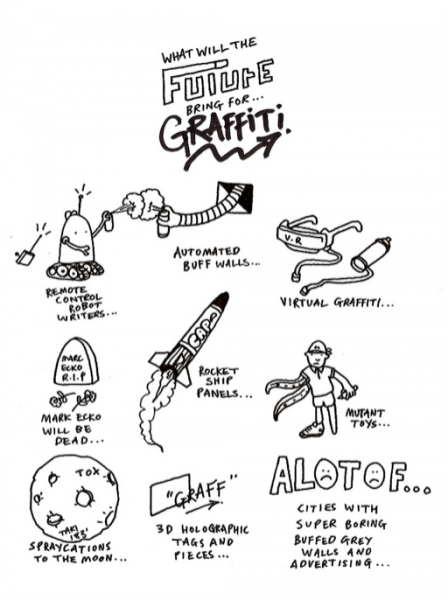 WHAT WILL THE
FUTURE
BRING FOR...
GRAFFITI.
REMOTE
CONTROL
ROBOT
WRITERS...
AUTOMATED
BUFF WALLS...
V.R
VIRTUAL GRAFFITI...
MARC
ECKO
R.I.P
MARK ECKO
WILL BE
DEAD...
ROCKET
SHIP
PANELS...
MUTANT
TOYS...
TOX
TAKI
183
SPRAYCATIONS
TO THE MOON...
"GRAFF"
3D HOLOGRAPHIC
TAGS AND
PIECES...
ALOTOF...
CITIES WITH
SUPER BORING
BUFFED GREY
WALLS AND
ADVERTISING...